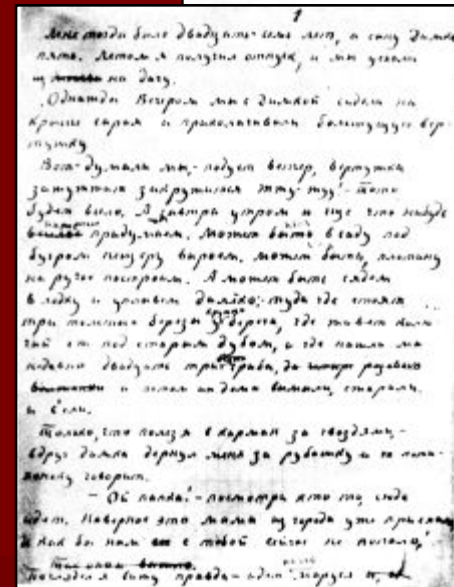 1
Мне тогда было двадцать семь лет, а сыну Димке
пять. Летом я получил отпуск, и мы уехали
на дачу.
Однажды Вечером мы с Димкой сидели на
крыше сарая и приколачивали вер-
тушку
Вот-думали мы,- подует ветер, вертушка
закружится - То-то
будет весело. А завтра утром и еще что нибудь
придумаем. Может быть в саду под
бугром пещеру выроем. может быть, плотину
на ручье построим. А может быть сядем
в лодку и уплывем далеко; туда где стоят
три березы у берега, где живет
под старым дубом, и где нашли мы
недавно двадцать три гриба, да
и потом их дома
и с'ели.
Только, что полез я в карман за гвоздями,-
вдруг димка дернул меня за рубашку и
говорит.
- Ой папка! - посмотри кто то сюда
идет. Наверное это мама из города уже
и как бы нам с тобой сейчас не попало!
правда - идет Маруся